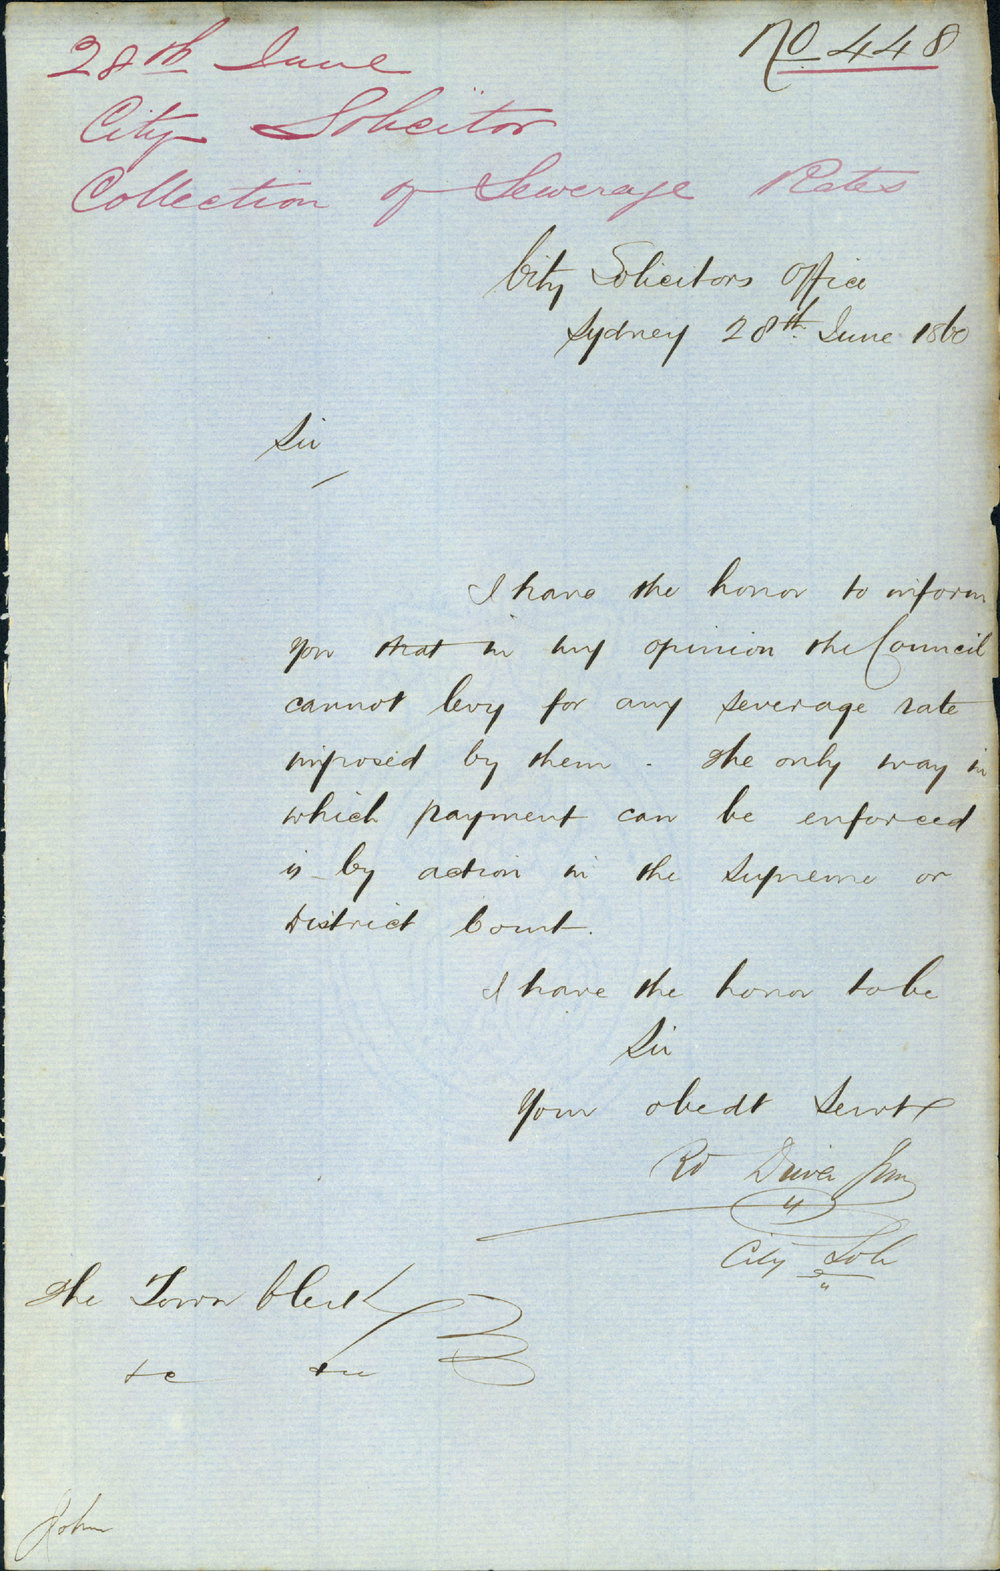 No 448
28th June
City Solicitor
Collection of Sewerage Rates
City Solicitors Office
Sydney 28th June 1860
Sir
I have the honor to inform
you that in my opinion the Council
cannot levy for any sewerage rate
imposed by them. The only way in
which payment can be enforced
is by action in the Supreme or
District Court.
I have the honor to be
Sir
Your obedt Servt
Rd Driver Jun
City Sol
The Town Clerk
&c &c
John